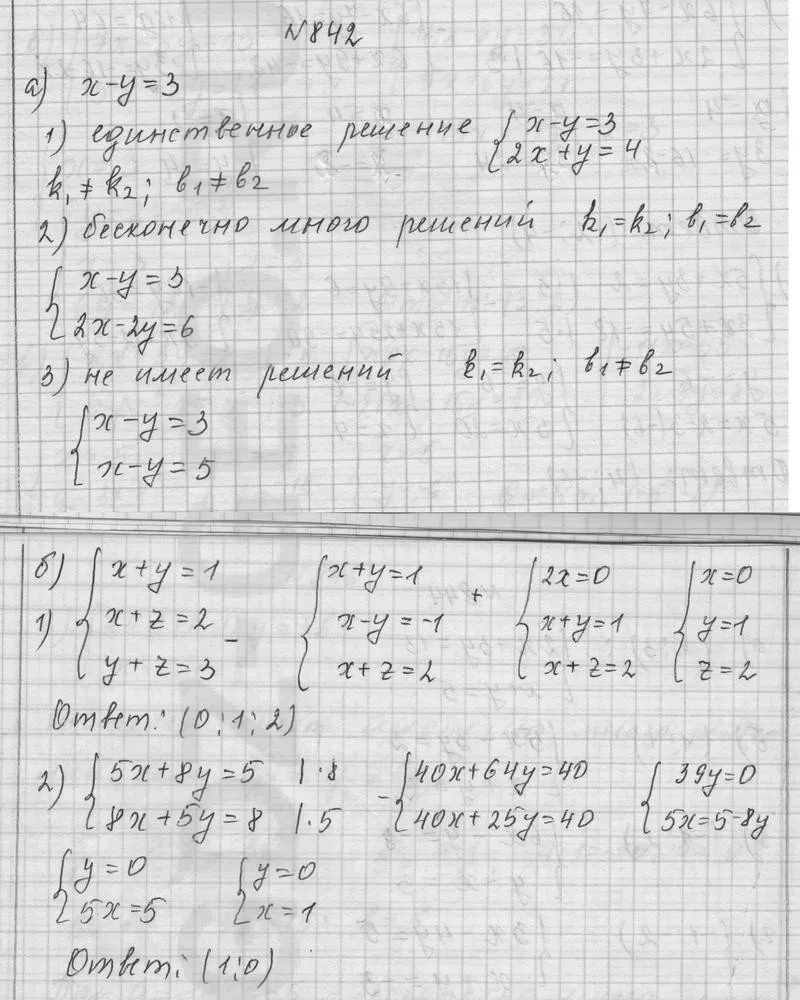 №842
а) x-y=3
1) единственное решение { x-y=3
2x+y=4
k₁≠k₂; b₁≠b₂
2) бесконечно много решений k₁=k₂; b₁=b₂
{ x-y=3
2x-2y=6
3) не имеет решений k₁=k₂; b₁≠b₂
{ x-y=3
x-y=5
б) { x+y=1 { x+y=1 + { 2x=0 { x=0
1) x+z=2 - x-y=-1 x+y=1 y=1
y+z=3 x+z=2 x+z=2 z=2
Ответ: (0;1;2)
2) { 5x+8y=5 |·8 - { 40x+64y=40 { 39y=0
8x+5y=8 |·5 40x+25y=40 5x=5-8y
{ y=0 { y=0
5x=5 x=1
Ответ: (1;0)